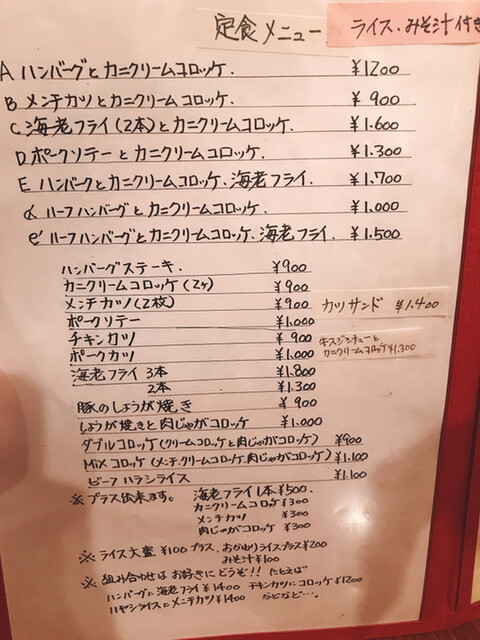 定食メニュー ライス・みそ汁付き
A ハンバーグとカニクリームコロッケ. ¥1200
B メンチカツとカニクリームコロッケ. ¥900
C 海老フライ(2本)とカニクリームコロッケ. ¥1.600
D ポークソテーとカニクリームコロッケ. ¥1.300
E ハンバークとカニクリームコロッケ、海老フライ. ¥1.700
ハーフハンバーグとカニクリームコロッケ. ¥1.000
e' ハーフハンバーグとカニクリームコロッケ、海老フライ. ¥1.500
ハンバーグステーキ. ¥900
カニクリームコロッケ(2ヶ) ¥900
メンチカツ(2枚) ¥900
カツサンド ¥1.400
ポークソテー ¥1.000
チキンカツ ¥900
牛スジシチューと
カニクリームコロッケ ¥1.300
ポークカツ ¥1.000
海老フライ 3本 ¥1.800
2本 ¥1.300
豚のしょうが焼き ¥900
しょうが焼きと肉じゃがコロッケ ¥1.000
ダブルコロッケ(クリームコロッケと肉じゃがコロッケ) ¥900
Mixコロッケ(メンチ.クリームコロッケ.肉じゃがコロッケ) ¥1.100
ビーフハヤシライス ¥1.100
※ プラス出来ます。 海老フライ1本¥500.
カニクリームコロッケ¥300
メンチカツ ¥300
肉じゃがコロッケ ¥300
※ ライス大盛 ¥100プラス、おかわりライスプラス¥200
みそ汁¥100
※ 組み合わせは お好きにどうぞ!! たとえば
ハンバーグに海老フライ¥1400 チキンカツにコロッケ¥1200
ハヤシライスにメンチカツ¥1400 などなど…。